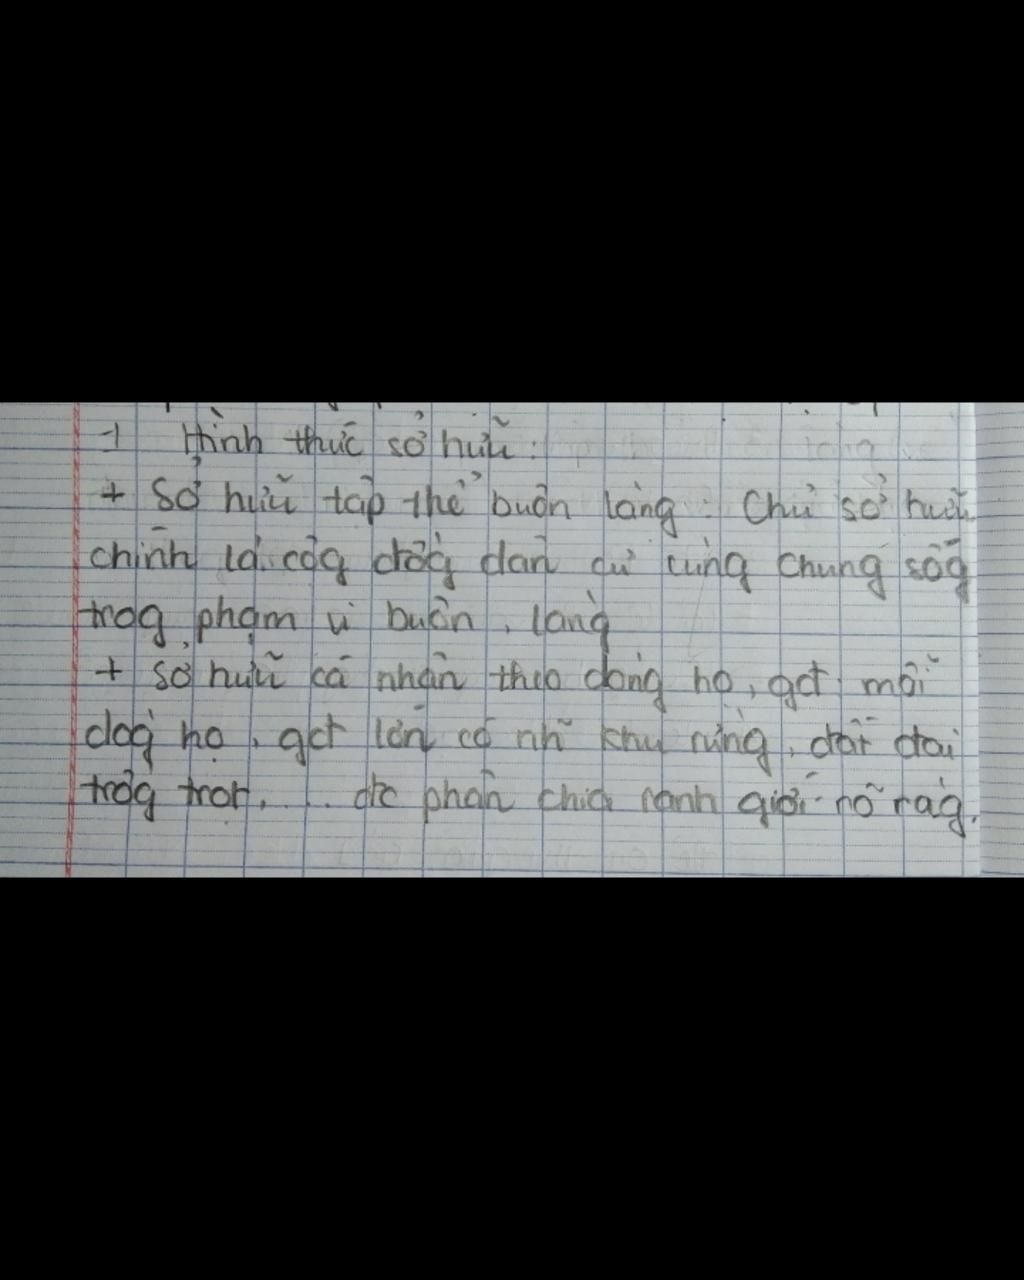 -1 Hình thức sở hữu:
+ Sở hữu tập thể buôn làng: Chủ sở hữu
chính là cộg đồg dân cư cùng chung sốg
trog phạm vi buôn, làng
+ Sở hữu cá nhân theo dòng họ, gđ, mỗi
dòg họ, gđ lớn có nh~ khu rừng, đất đai
trồg trọt, ... đc phân chia ranh giới rõ ràg.